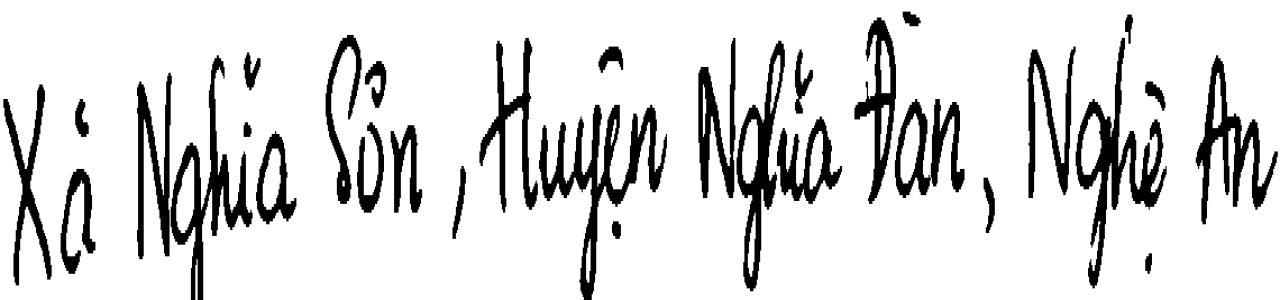 Xã Nghĩa Sơn, Huyện Nghĩa Đàn, Nghệ An